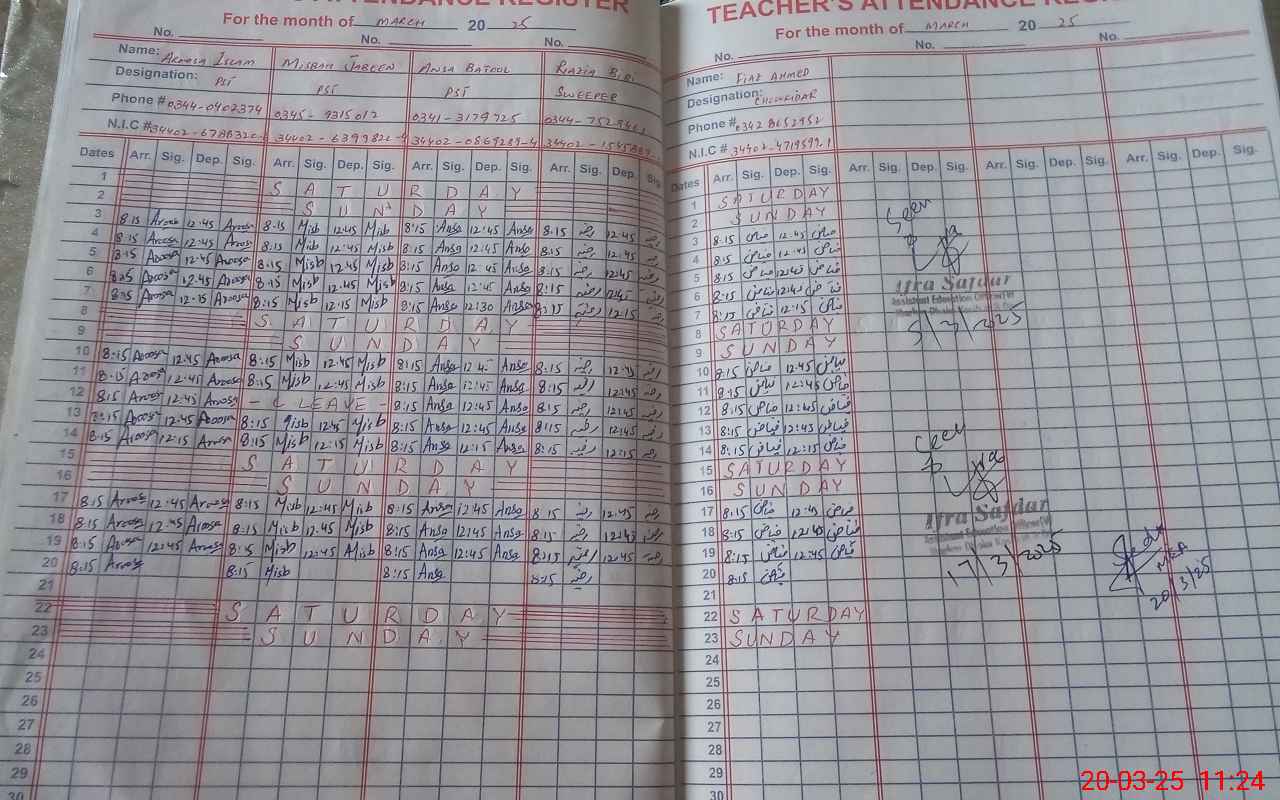 ATTENDANCE REGISTER
For the month of MARCH 20 25
No. No. No.
Name: Aroosa Islam Misbah Jabeen Ansa Batool Razia Bibi
Designation: PST PST PST SWEEPER
Phone # 0344-0402374 0345-9315012 0341-3179725
N.I.C #
Dates Arr. Sig. Dep. Sig. Arr. Sig. Dep. Sig. Arr. Sig. Dep. Sig. Arr. Sig. Dep. Sig.
1 SATURDAY
2 SUNDAY
3 8:15 Aroosa 12:45 Aroosa 8:15 Misb 12:45 Misb 8:15 Ansa 12:45 Ansa 8:15 رضیہ 12:45 رضیہ
4 8:15 Aroosa 12:45 Aroosa 8:15 Misb 12:45 Misb 8:15 Ansa 12:45 Ansa 8:15 رضیہ 12:45 رضیہ
5 8:15 Aroosa 12:45 Aroosa 8:15 Misb 12:45 Misb 8:15 Ansa 12:45 Ansa 8:15 رضیہ 12:45 رضیہ
6 8:15 Aroosa 12:45 Aroosa 8:15 Misb 12:45 Misb 8:15 Ansa 12:45 Ansa 8:15 رضیہ 12:45 رضیہ
7 8:15 Aroosa 12:15 Aroosa 8:15 Misb 12:15 Misb 8:15 Ansa 12:30 Ansa 8:15 رضیہ 12:15 رضیہ
8 SATURDAY
9 SUNDAY
10 8:15 Aroosa 12:45 Aroosa 8:15 Misb 12:45 Misb 8:15 Ansa Ansa 8:15 رضیہ 12:45 رضیہ
11 8:15 Aroosa 12:45 Aroosa 8:15 Misb 12:45 Misb 8:15 Ansa 12:45 Ansa 8:15 رضیہ 12:45 رضیہ
12 8:15 Aroosa 12:45 Aroosa - C LEAVE - 8:15 Ansa 12:45 Ansa 8:15 رضیہ 12:45 رضیہ
13 8:15 Aroosa 12:45 Aroosa 8:15 Misb 12:45 Misb 8:15 Ansa 12:45 Ansa 8:15 رضیہ 12:45 رضیہ
14 8:15 Aroosa 12:15 Aroosa 8:15 Misb 12:15 Misb 8:15 Ansa 12:15 Ansa 8:15 رضیہ 12:15 رضیہ
15 SATURDAY
16 SUNDAY
17 8:15 Aroosa 12:45 Aroosa 8:15 Misb 12:45 Misb 8:15 Ansa 12:45 Ansa 8:15 رضیہ 12:45 رضیہ
18 8:15 Aroosa 12:45 Aroosa 8:15 Misb 12:45 Misb 8:15 Ansa 12:45 Ansa 8:15 رضیہ 12:45 رضیہ
19 8:15 Aroosa 12:45 Aroosa 8:15 Misb 12:45 Misb 8:15 Ansa 12:45 Ansa 8:15 رضیہ 12:45 رضیہ
20 8:15 Aroosa 8:15 Misb 8:15 Ansa 8:15 رضیہ
21
22 SATURDAY
23 SUNDAY
24
25
26
27
28
29
30
TEACHER'S ATTENDANCE REGI
For the month of MARCH 20 25
No. No. No.
Name: FIAZ AHMED
Designation: CHOWKIDAR
Phone # 0342 8652952
N.I.C #
Dates Arr. Sig. Dep. Sig. Arr. Sig. Dep. Sig. Arr. Sig. Dep. Sig. Arr. Sig. Dep. Sig.
1 SATURDAY
2 SUNDAY
3 8:15 فیاض 12:45 فیاض
4 8:15 فیاض 12:45 فیاض
5 8:15 فیاض 12:45 فیاض
6 8:15 فیاض 12:45 فیاض
7 8:15 فیاض 12:15 فیاض
8 SATURDAY
9 SUNDAY
10 8:15 فیاض 12:45 فیاض
11 8:15 فیاض 12:45 فیاض
12 8:15 فیاض 12:45 فیاض
13 8:15 فیاض 12:45 فیاض
14 8:15 فیاض 12:15 فیاض
15 SATURDAY
16 SUNDAY
17 8:15 فیاض 12:45 فیاض
18 8:15 فیاض 12:45 فیاض
19 8:15 فیاض 12:45 فیاض
20 8:15 فیاض
21
22 SATURDAY
23 SUNDAY
24
25
26
27
28
29
30
Seen
Ifra Safdar
Assistant Education Officer
5/3/2025
Seen
Ifra Safdar
Assistant Education Officer
17/3/2025
MEA
20/3/25
20-03-25 11:24